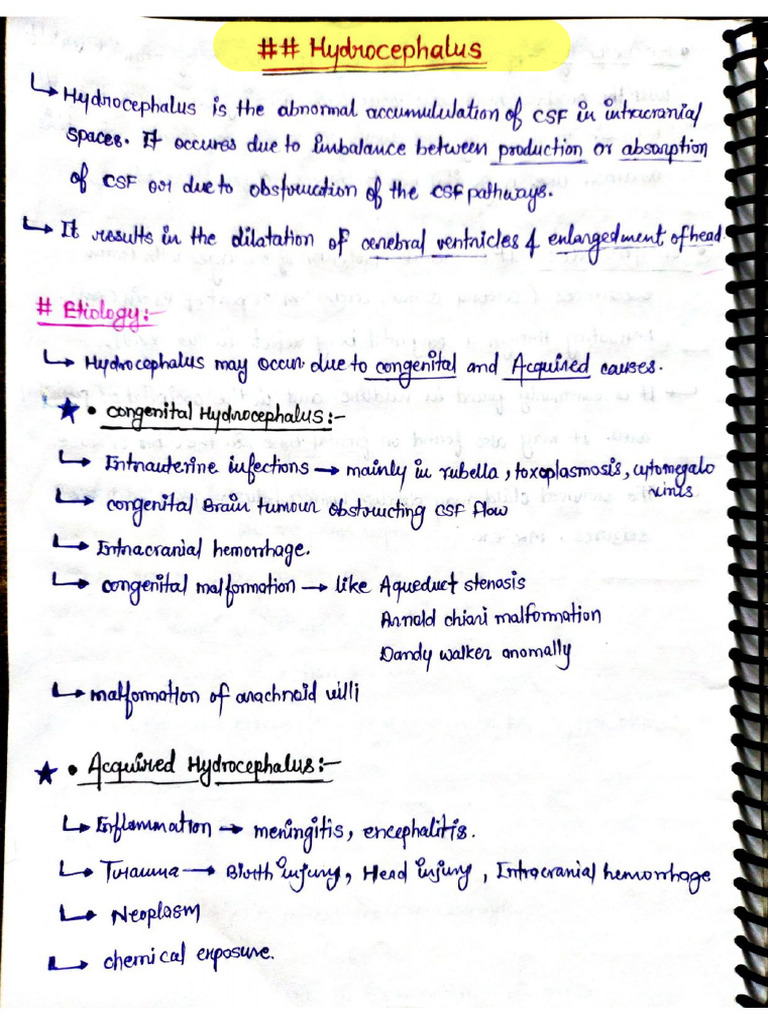 ## Hydrocephalus
↳ Hydrocephalus is the abnormal accumululation of CSF in intracranial
spaces. It occures due to imbalance between production or absorption
of CSF or due to obstruction of the CSF pathways.
↳ It results in the dilatation of cerebral ventricles & enlargedment of head.
# Etiology:-
↳ Hydrocephalus may occur due to congenital and Acquired causes.
★ • Congenital Hydrocephalus:-
↳ Intrauterine infections → mainly in rubella, toxoplasmosis, cytomegalo
virus
↳ congenital Brain tumour obstructing CSF flow
↳ Intracranial hemorrhage.
↳ congenital malformation → like Aqueduct stenosis
Arnold chiari malformation
Dandy walker anomally
↳ malformation of arachnoid villi
★ • Acquired Hydrocephalus:-
↳ Inflammation → meningitis, encephalitis.
↳ Trauma → Birth injury, Head injury, Intracranial hemorrhage
↳ Neoplasm
↳ chemical exposure.